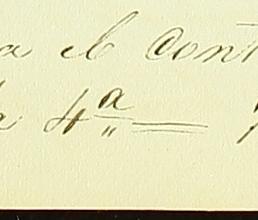 a il cont
a 4ª =